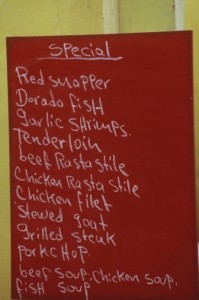 Special
Red snapper
Dorado fish
garlic shrimps.
Tenderloin
beef Rasta stile
Chicken Rasta stile
Chicken filet
stewed goat
grilled steak
porkchop
beef soup. Chicken soup.
fish soup